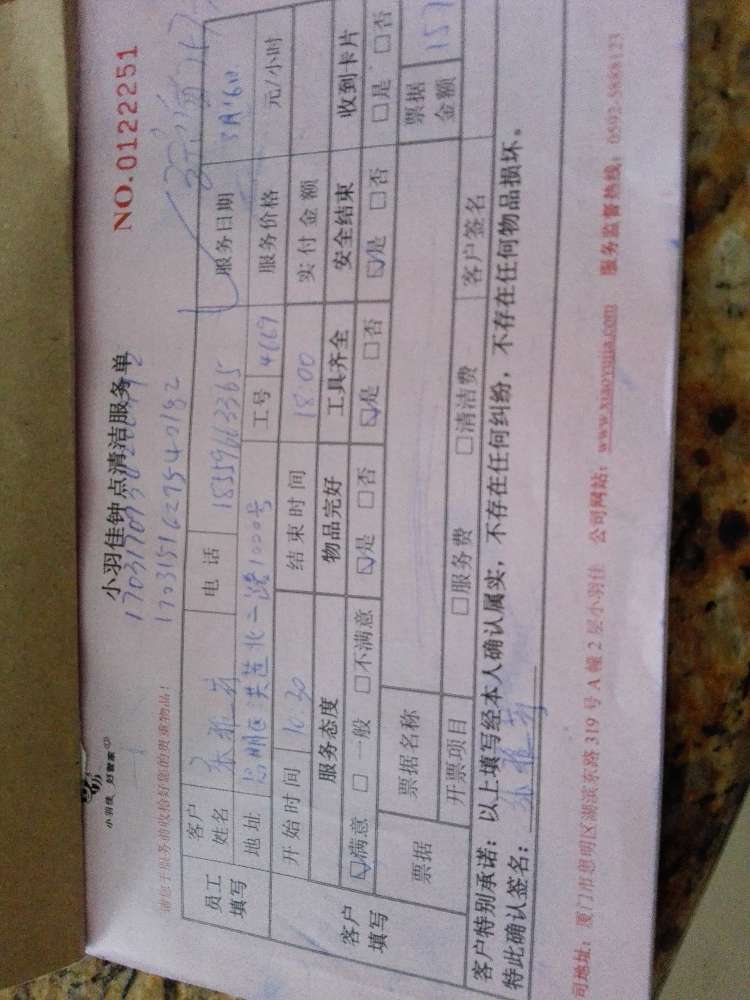 小羽佳 好管家
小羽佳钟点清洁服务单
NO.0122251
1703151627540182
请您于服务前收拾好您的贵重物品!
员工填写 客户姓名 电话 服务日期 3月16日
地址 工号 4669 服务价格 元/小时
开始时间 结束时间 18:00 实付金额
客户填写 服务态度 物品完好 工具齐全 安全结束 收到卡片
☑满意 □一般 □不满意 ☑是 □否 ☑是 □否 ☑是 □否 □是 □否
票据 票据名称 票据金额
开票项目 □服务费 □清洁费 客户签名
客户特别承诺:以上填写经本人确认属实,不存在任何纠纷,不存在任何物品损坏。
特此确认签名:
司地址:厦门市思明区湖滨东路319号A幢2层小羽佳 公司网站:www.xiaoyujia.com 服务监督热线:0592-5888123